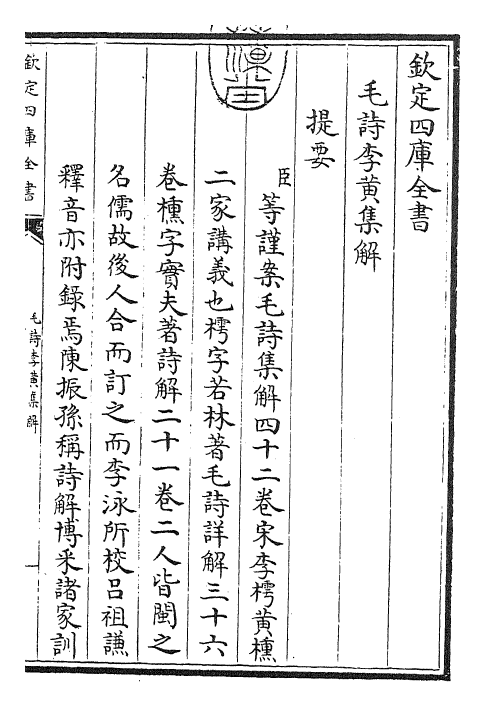 欽定四庫全書
毛詩李黃集解
提要
臣等謹案毛詩集解四十二卷宋李樗黃櫄
二家講義也樗字若林著毛詩詳解三十六
卷櫄字實夫著詩解二十一卷二人皆閩之
名儒故後人合而訂之而李泳所校呂祖謙
釋音亦附錄焉陳振孫稱詩解博采諸家訓
欽定四庫全書
毛詩李黃集解
一